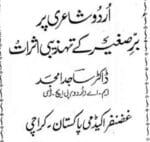 اُردو شاعری پر
برِّصغیر کے تہذیبی اثرات
ڈاکٹر ساجد امجد
ایم۔اے (اردو) پی ایچ۔ڈی
غضنفر اکیڈمی پاکستان۔ کراچی